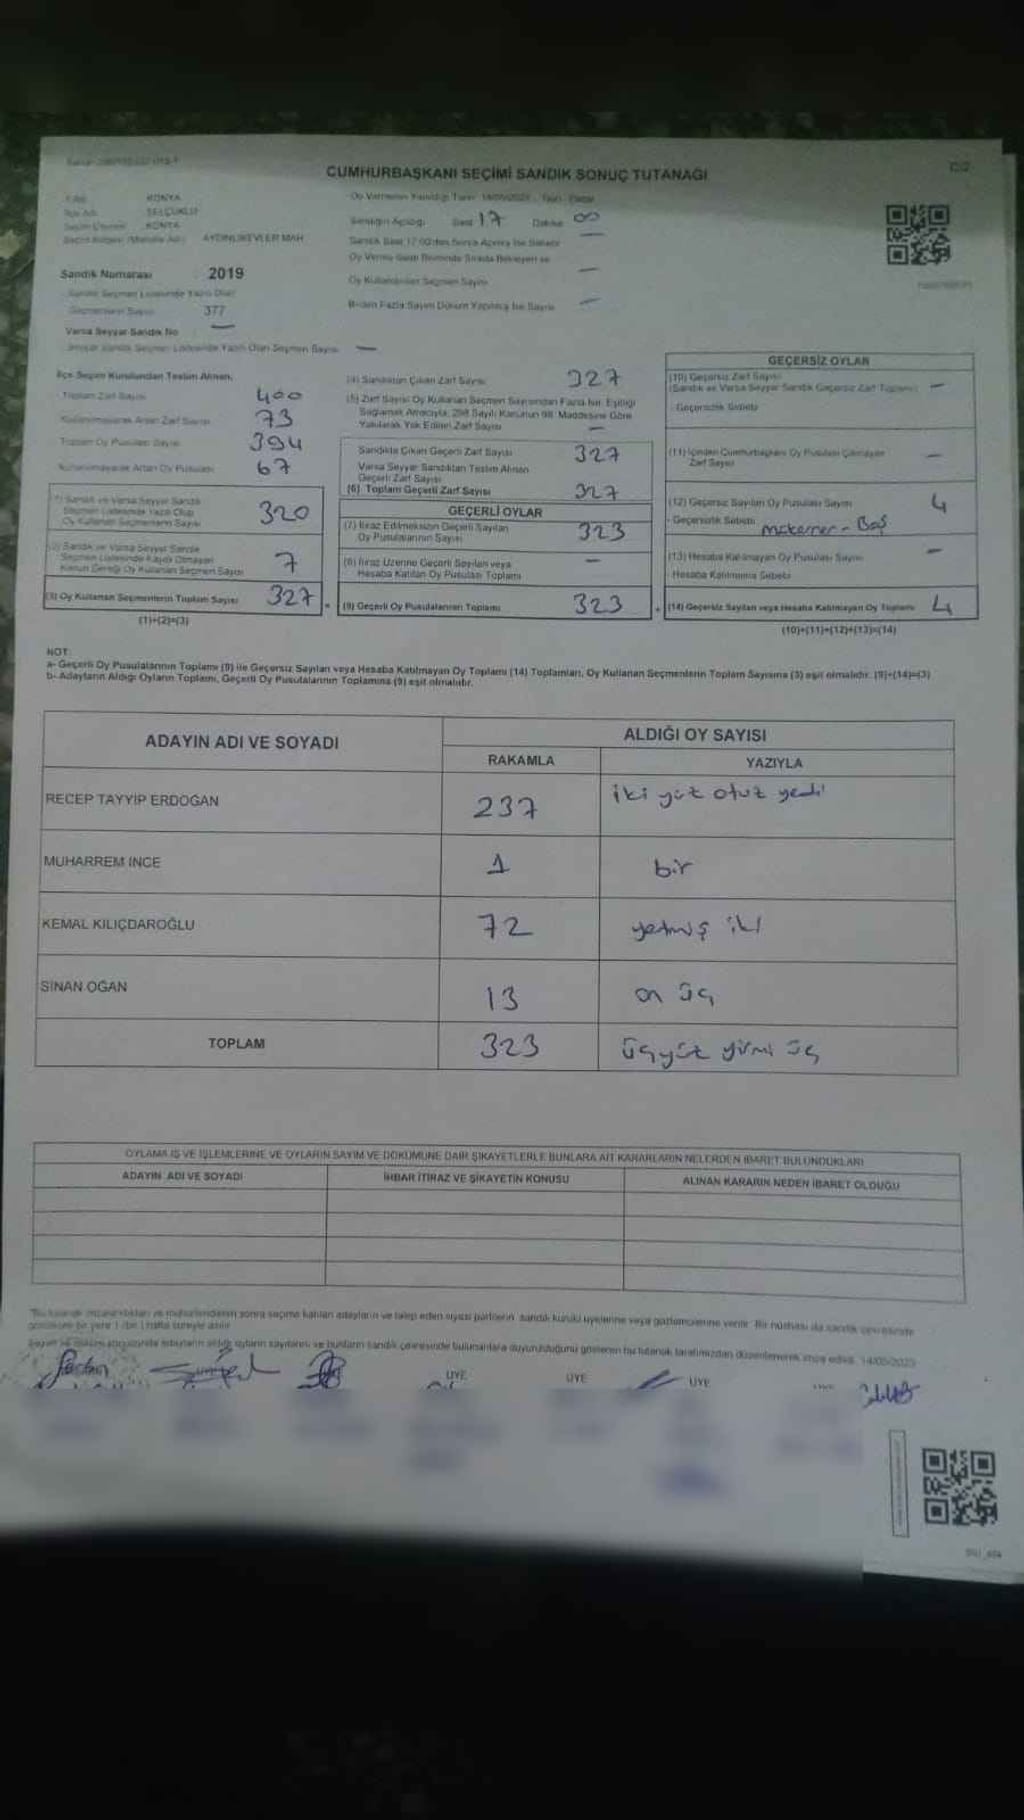 CUMHURBAŞKANI SEÇİMİ SANDIK SONUÇ TUTANAĞI
KONYA
SELÇUKLU
KONYA
AYDINLIKEVLER MAH
Sandık Numarası 2019
Sandık Seçmen Listesinde Yazılı Olan
Seçmenlerin Sayısı 377
Varsa Seyyar Sandık No —
Seyyar Sandık Seçmen Listesinde Yazılı Olan Seçmen Sayısı —
Sandığın Açıldığı Saat 17 Dakika 00
Sandık Saat 17.00'den Sonra Açılmış İse Sebebi —
Oy Verme Saati Bitiminde Sırada Bekleyen ve
Oy Kullandırılan Seçmen Sayısı —
Birden Fazla Sayım Döküm Yapılmış İse Sayısı —
İlçe Seçim Kurulundan Teslim Alınan;
Toplam Zarf Sayısı 400
Kullanılmayarak Artan Zarf Sayısı 73
Toplam Oy Pusulası Sayısı 394
Kullanılmayarak Artan Oy Pusulası 67
(1) Sandık ve Varsa Seyyar Sandık
Seçmen Listesinde Yazılı Olup
Oy Kullanan Seçmenlerin Sayısı 320
(2) Sandık ve Varsa Seyyar Sandık
Seçmen Listesinde Kaydı Olmayan
Kanun Gereği Oy Kullanan Seçmen Sayısı 7
(3) Oy Kullanan Seçmenlerin Toplam Sayısı 327
(1)+(2)=(3)
(4) Sandıktan Çıkan Zarf Sayısı 327
(5) Zarf Sayısı Oy Kullanan Seçmen Sayısından Fazla İse, Eşitliği
Sağlamak Amacıyla, 298 Sayılı Kanunun 98. Maddesine Göre
Yakılarak Yok Edilen Zarf Sayısı —
Sandıkta Çıkan Geçerli Zarf Sayısı 327
Varsa Seyyar Sandıktan Teslim Alınan
Geçerli Zarf Sayısı
(6) Toplam Geçerli Zarf Sayısı 327
GEÇERLİ OYLAR
(7) İtiraz Edilmeksizin Geçerli Sayılan
Oy Pusulalarının Sayısı 323
(8) İtiraz Üzerine Geçerli Sayılan veya
Hesaba Katılan Oy Pusulası Toplamı —
(9) Geçerli Oy Pusulalarının Toplamı 323
GEÇERSİZ OYLAR
(10) Geçersiz Zarf Sayısı
(Sandık ve Varsa Seyyar Sandık Geçersiz Zarf Toplamı) —
Geçersizlik Sebebi
(11) İçinden Cumhurbaşkanı Oy Pusulası Çıkmayan
Zarf Sayısı —
(12) Geçersiz Sayılan Oy Pusulası Sayısı 4
Geçersizlik Sebebi
(13) Hesaba Katılmayan Oy Pusulası Sayısı —
Hesaba Katılmama Sebebi
(14) Geçersiz Sayılan veya Hesaba Katılmayan Oy Toplamı 4
(10)+(11)+(12)+(13)=(14)
NOT:
a- Geçerli Oy Pusulalarının Toplamı (9) ile Geçersiz Sayılan veya Hesaba Katılmayan Oy Toplamı (14) Toplamları, Oy Kullanan Seçmenlerin Toplam Sayısına (3) eşit olmalıdır. (9)+(14)=(3)
b- Adayların Aldığı Oyların Toplamı, Geçerli Oy Pusulalarının Toplamına (9) eşit olmalıdır.
ADAYIN ADI VE SOYADI ALDIĞI OY SAYISI
RAKAMLA YAZIYLA
RECEP TAYYİP ERDOĞAN 237 iki yüz otuz yedi
MUHARREM İNCE 1 bir
KEMAL KILIÇDAROĞLU 72 yetmiş iki
SİNAN OĞAN 13 on üç
TOPLAM 323 üçyüz yirmi üç
OYLAMA İŞ VE İŞLEMLERİNE VE OYLARIN SAYIM VE DÖKÜMÜNE DAİR ŞİKAYETLERLE BUNLARA AİT KARARLARIN NELERDEN İBARET BULUNDUKLARI
ADAYIN ADI VE SOYADI İHBAR İTİRAZ VE ŞİKAYETİN KONUSU ALINAN KARARIN NEDEN İBARET OLDUĞU
ÜYE ÜYE ÜYE